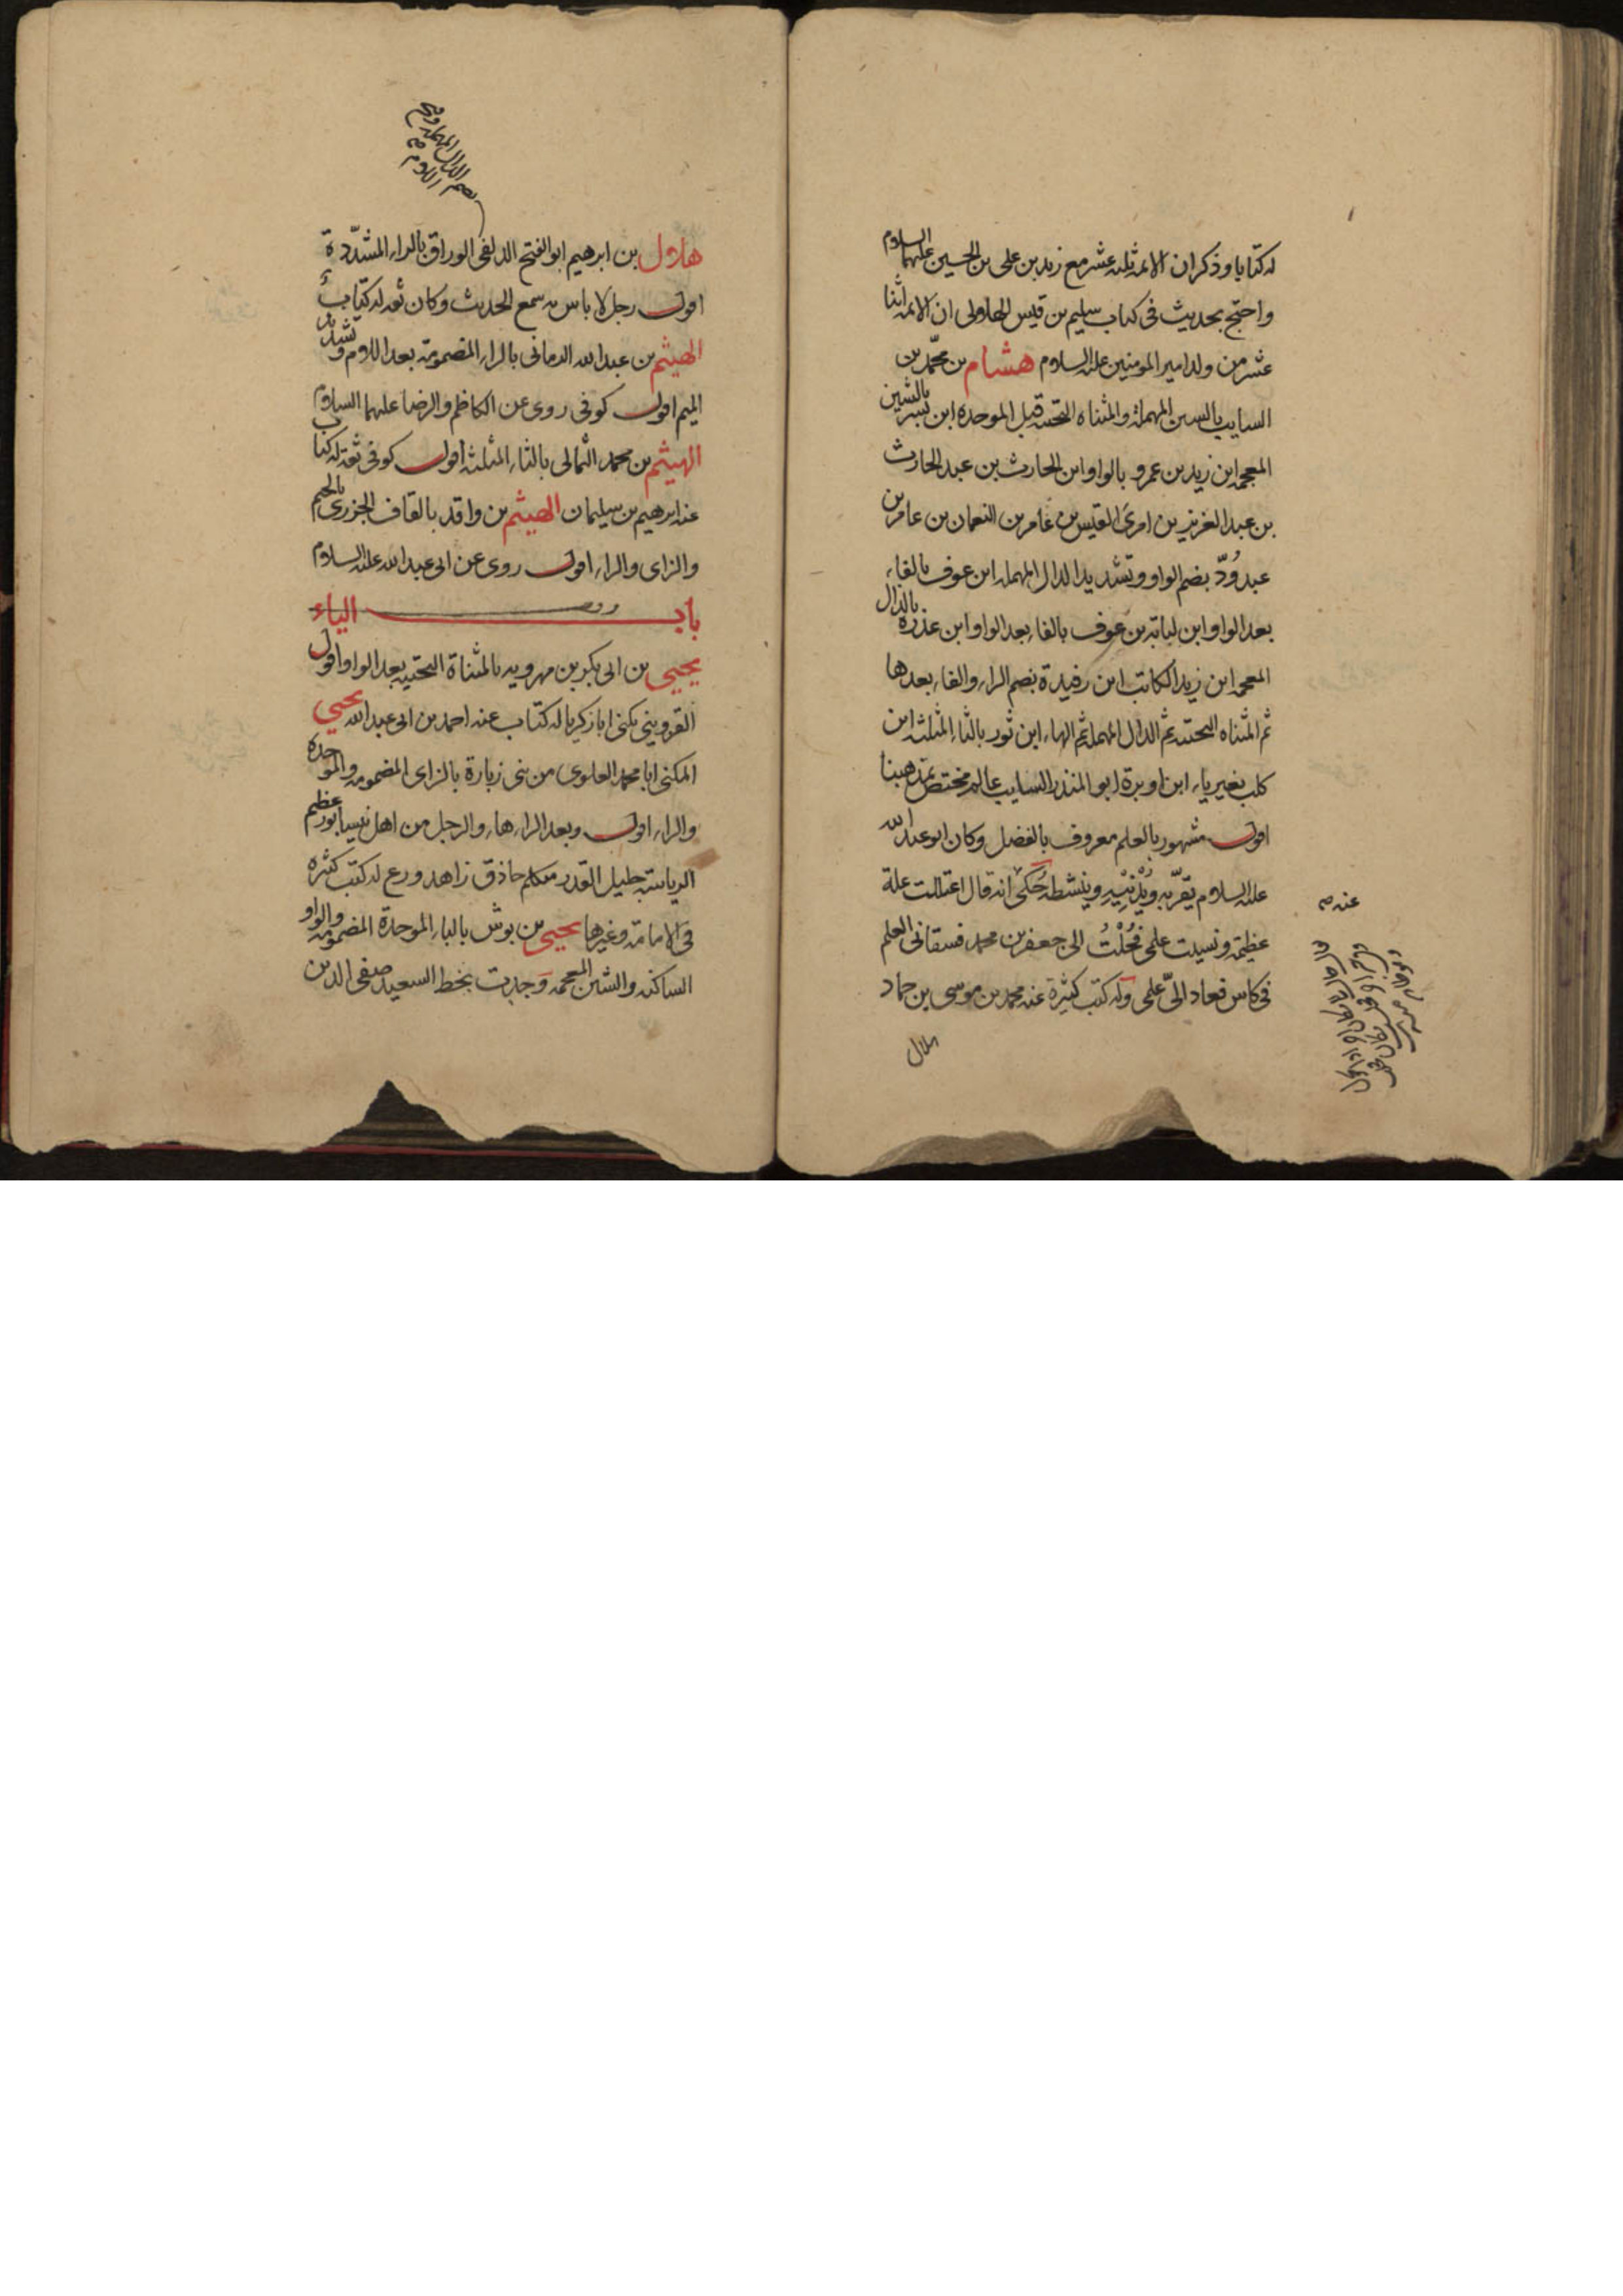 له كتابا وذكر ان الائمة ثلثه عشر مع زيد بن على بن الحسين عليهما السلام
واحتج بحديث فى كتاب سليم بن قيس الهلالى ان الائمه اثنا
عشر من ولد امير المومنين عليه السلام هشام بن محمّد بن
السايب بالسين المهملة والمثناه التحتيه قبل الموحده ابن بشر بالشين
المعجمه ابن زيد بن عمرو بالواو ابن الحارث بن عبد الحارث
بن عبد العزيز بن امرئ القيس بن عامر بن النعمان بن عامر بن
عبد وُدّ بضم الواو وتشديد الدال المهمله ابن عوف بالفاء
بعد الواو ابن لبابة بن عوف بالفاء بعد الواو ابن عذره بالذال
المعجمه ابن زيد الكاتب ابن رفيدة بضم الراء والفاء بعدها
ثم المثناه التحتيه ثم الدال المهملة ثم الهاء ابن ثور بالثاء المثلثه ابن
كلب بغير ياء ابن اوبرة ابو المنذر السايب عالم مختص بمذهبنا
اقول مشهور بالعلم معروف بالفضل وكان ابو عبد الله
عليه السلام يقرّبه ويُدْنِيْهِ وينشطه حُكى انه قال اعتللت علة
عظيمة ونسيت علمى فحُلْتُ الى جعفر بن محمد فسقانى العلم
فى كاس فعاد الىّ علمى وله كتب كثيرة عنه محمد بن موسى بن حماد
عنه صح
هلال
بضم الدال المهملة وفتح
اللام صح
هلال بن ابرهيم ابو الفتح الدلفى الوراق بالراء المشدّدة
اقول رجل لا باس به سمع الحديث وكان ثقه له كتابٌ
الهيثم بن عبد الله الرمانى بالراء المضمومة بعد اللام وتشديد
الميم اقول كوفى روى عن الكاظم والرضا عليهما السلام
الهيثم بن محمد الثمالى بالثاء المثلثه اقول كوفى ثقة له كتاب
عنه ابرهيم بن سليمان الهيثم بن واقد بالقاف الجزرى بالجيم
والزاى والراء اقول روى عن ابى عبد الله عليه السلام
باب الياء
يحيى بن ابى بكر بن مهرويه بالمثناة التحتيه بعد الواو اقول
القزوينى يكنى ابا زكريا له كتاب عنه احمد بن ابى عبد الله يحيى
المكنى ابا محمد العلوى من بنى زبارة بالزاى المضمومه والموحده
والراء اقول وبعد الراء هاء والرجل من اهل نيسابور عظيم
الرياسة جليل القدر متكلم حاذق زاهد ورع له كتب كثيره
فى الامامة وغيرها يحيى بن بوش بالباء الموحدة المضمومه والواو
الساكنه والشين المعجمه وجدت بخط السعيد صفى الدين